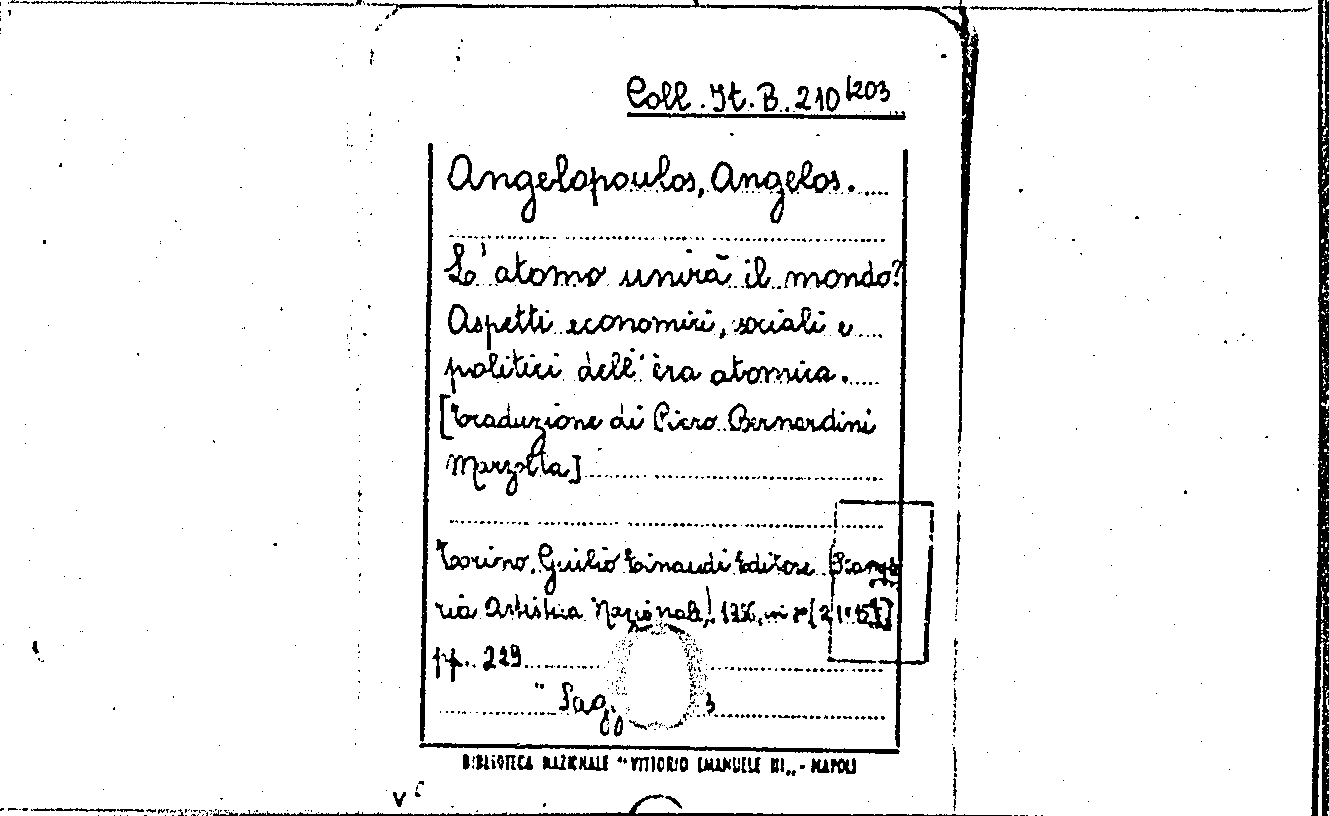 Coll. It. B. 210/203
Angelopoulos, Angelos.
L'atomo unirà il mondo?
Aspetti economici, sociali e
politici dell'èra atomica.
[Traduzione di Piero Bernardini
Marzolla]
Torino, Giulio Einaudi Editore
ria Artistica Nazionale), 1956, in 8°
pp. 229
BIBLIOTECA NAZIONALE "VITTORIO EMANUELE III„ - NAPOLI